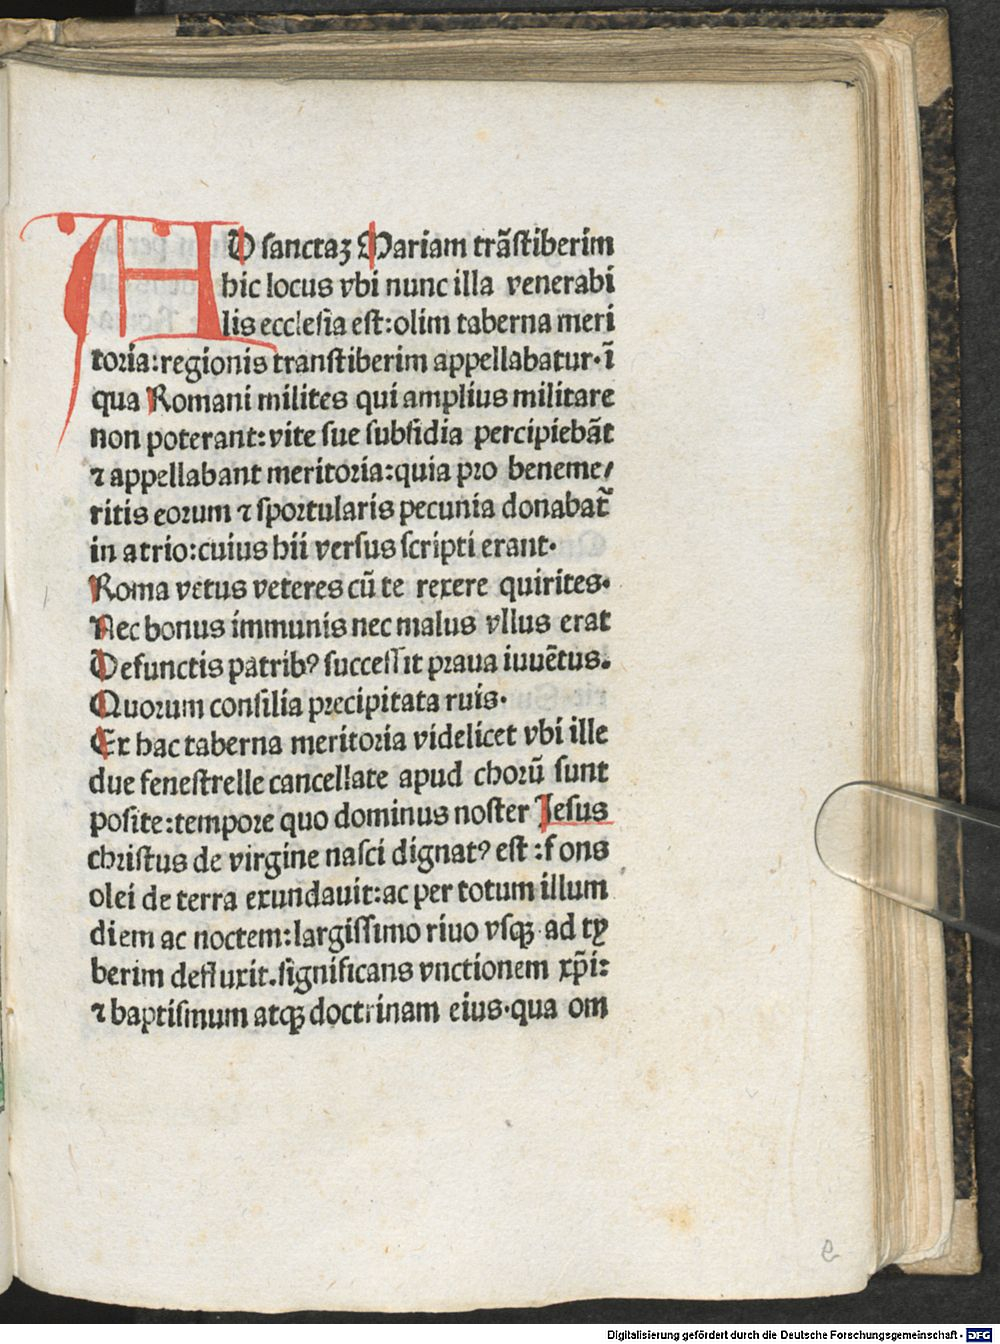 AD sanctaꝫ Mariam trãſtiberim
hic locus vbi nunc illa venerabi
lis eccleſia est:olim taberna meri
toria:regionis tranſtiberim appellabatur·ī
qua Romani milites qui amplius militare
non poterant:vite ſue ſubſidia percipiebāt
⁊ appellabant meritoria:quia pro beneme/
ritis eorum ⁊ ſportularis pecunia donabat̄
in atrio:cuius hii verſus ſcripti erant·
Roma vetus veteres cū te rexere quirites·
Nec bonus immunis nec malus vllus erat
Defunctis patribꝰ ſucceſſit praua iuuētus.
Quorum conſilia precipitata ruis·
Ex hac taberna meritoria videlicet vbi ille
due feneſtrelle cancellate apud chorū ſunt
poſite:tempore quo dominus noſter Jeſus
chriſtus de virgine naſci dignatꝰ eſt :fons
olei de terra exundauit:ac per totum illum
diem ac noctem:largiſſimo riuo vſqꝫ ad ty
berim defluxit.ſignificans vnctionem xp̄i:
⁊ baptiſmum atqꝫ doctrinam eius·qua om
e
Digitalisierung gefördert durch die Deutsche Forschungsgemeinschaft - DFG